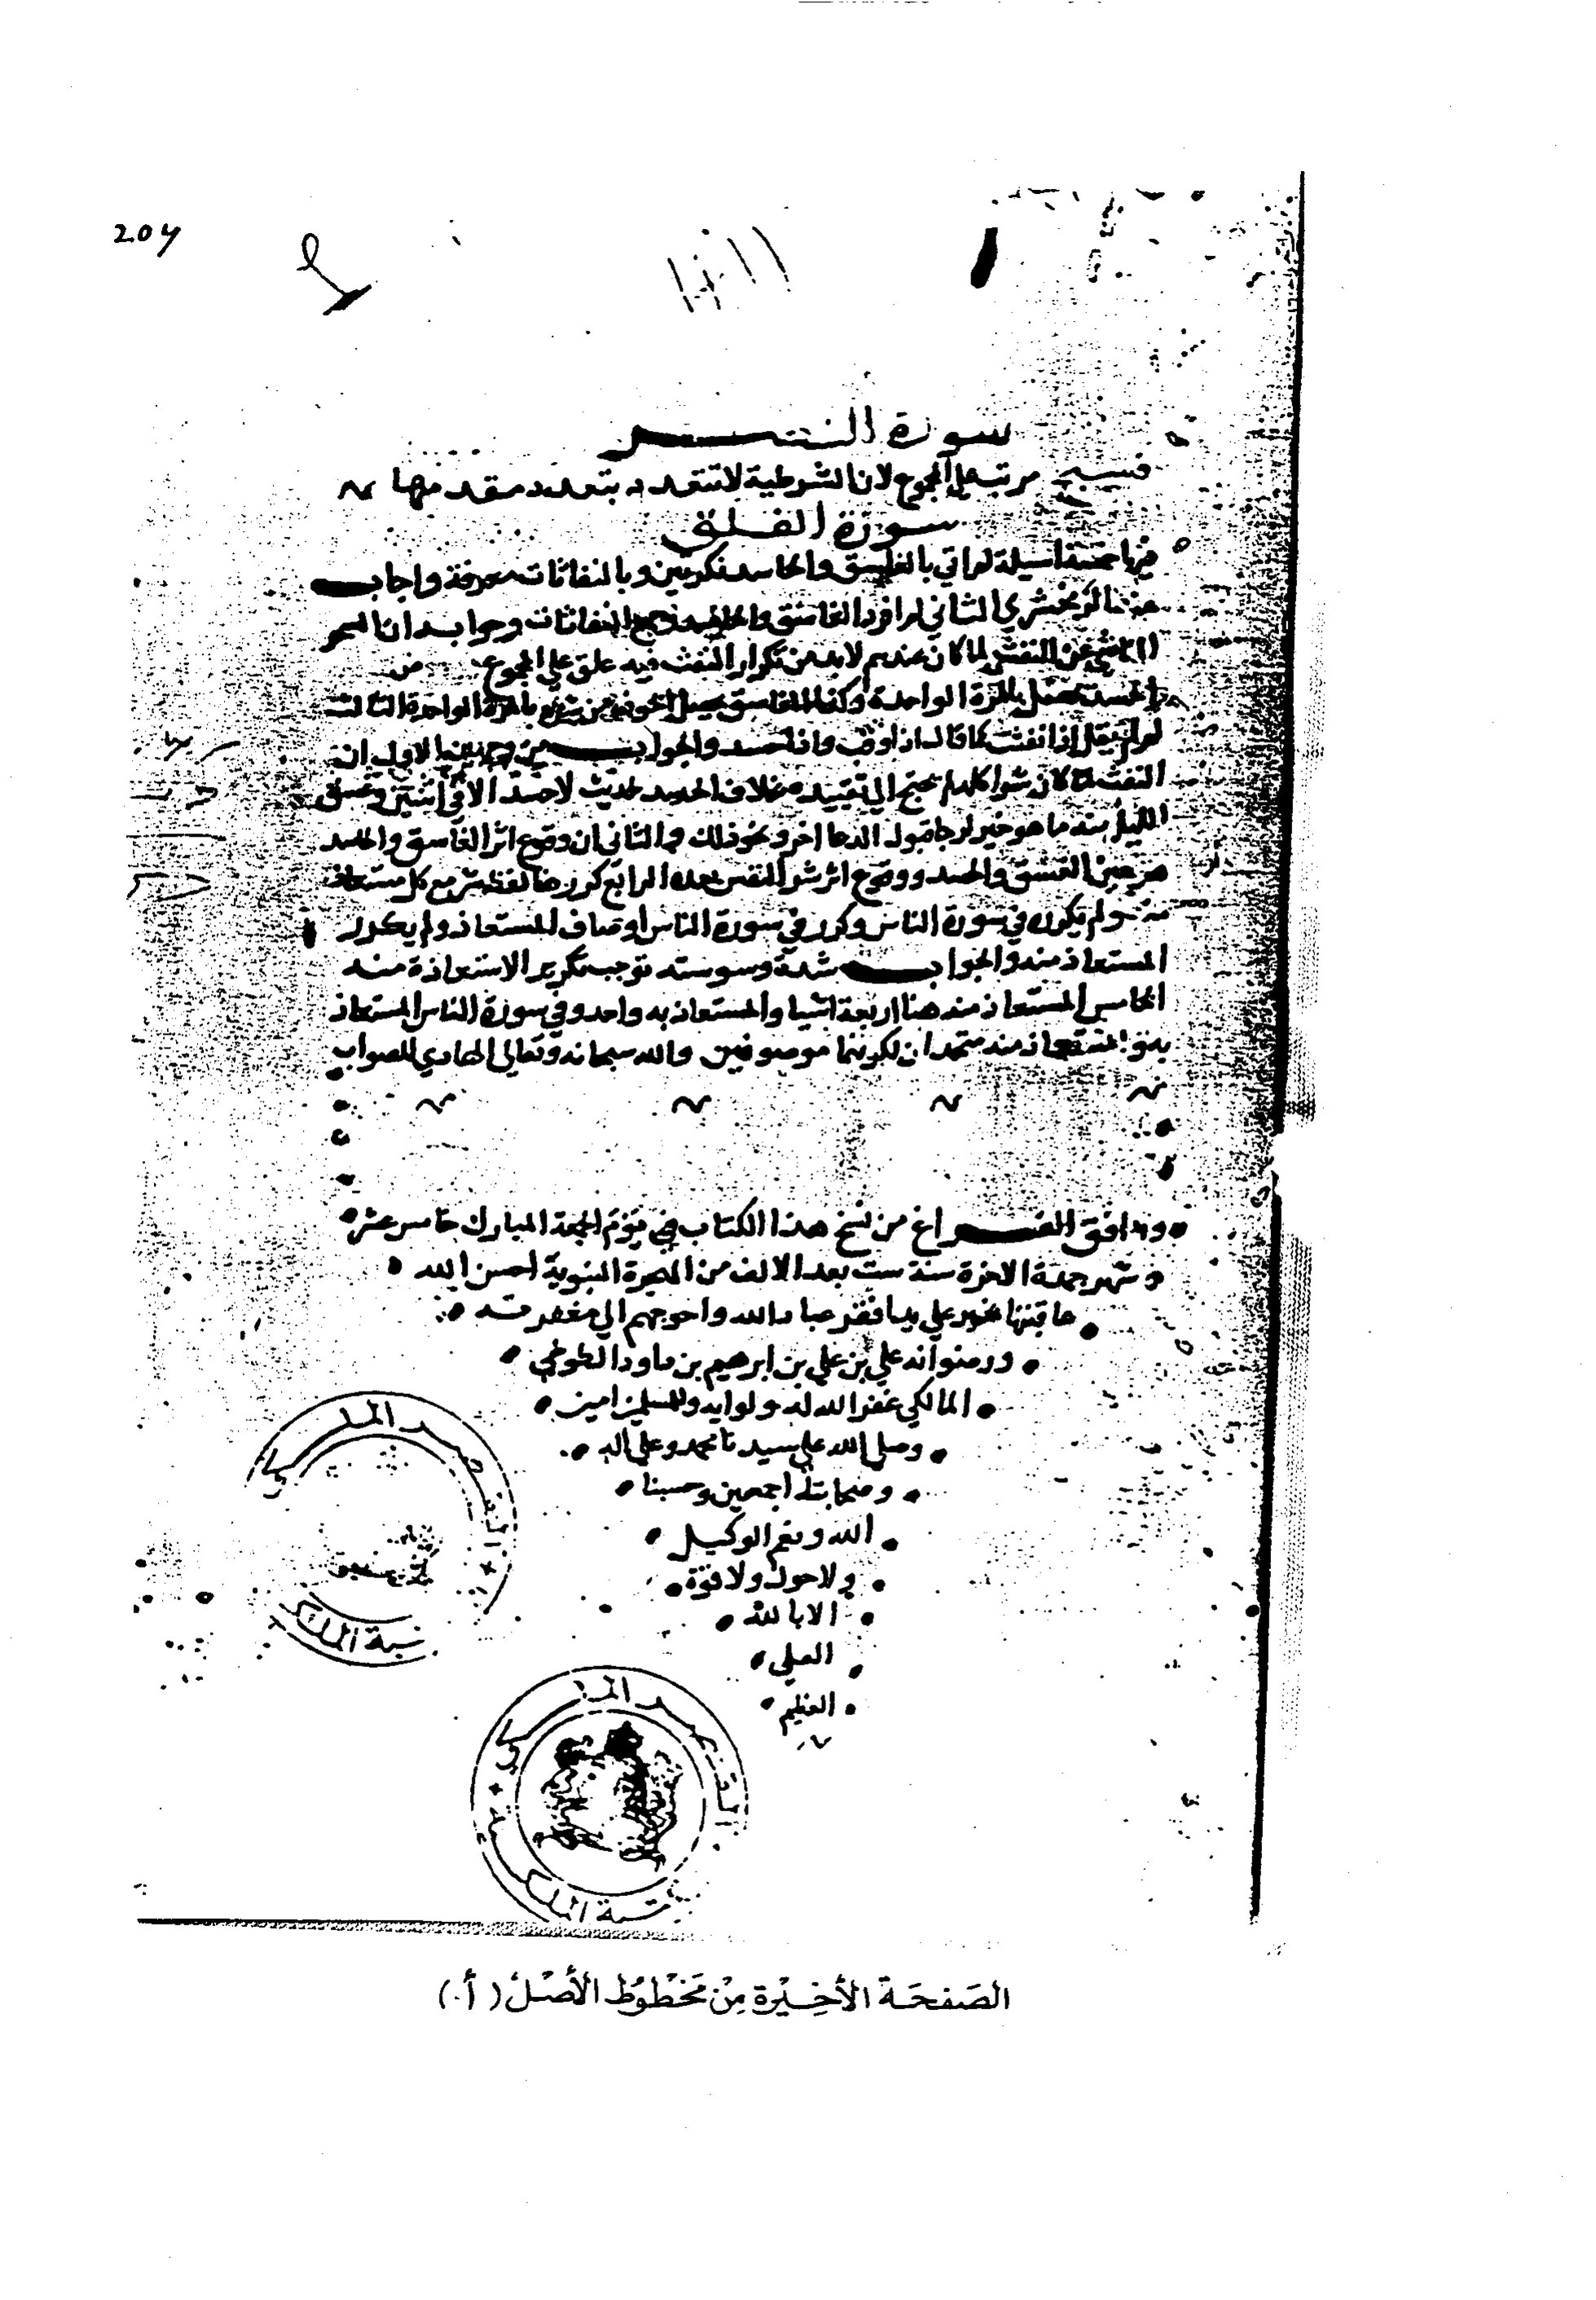 204
سورة النصر
فسبح مرتب علي المجموع لان الشرطية لا تتعدد بتعدد مقدمها
سورة الفلق
فيها خمسة اسيلة لم اتي بالغاسق والحاسد نكرتين وبالنفاثات معرفة واجاب
عنه الزمخشري الثاني لم افرد الغاسق والحاسد وجمع النفاثات وجوابه ان السحر
الناشي عن النفث لما كان عندهم لا بد من تكرار النفث فيه علق علي المجموع
والحسد يحصل بالمرة الواحدة وكذا الغاسق يحصل الخوف من شره بالمرة الواحدة الثالث
لم لم يقل اذا نفثت كما قال اذا وقب واذا حسد والجواب من وجهين الاول ان
النفث لما كان شرا كله لم يحتج الي تقييده بخلاف الحسد لحديث لا حسد الا في اثنتين وغسق
الليل منه ما هو خير لرجا قبول الدعا اخره ونحو ذلك والثاني ان وقوع اثر الغاسق والحسد
من حين الغسق والحسد ووقوع اثر شر النفس بعده الرابع كرر هنا لفظ شر مع كل مستعاذ
منه ولم يكرره في سورة الناس وكرر في سورة الناس اوصاف المستعاذ ولم يكرر
المستعاذ منه والجواب شدة وسوسته توجب تكرير الاستعاذة منه
الخامس المستعاذ منه هنا اربعة اشيا والمستعاذ به واحد وفي سورة الناس المستعاذ
به والمستعاذ منه متحدان لكونهما موصوفين والله سبحانه وتعالي الهادي للصواب
ووافق الفراغ من نسخ هذا الكتاب في يوم الجمعة المبارك خامس عشر
شهر جمدة الاخرة سنة ست بعد الالف من الهجرة النبوية احسن الله
عاقبتها بخير علي يد افقر عباد الله واحوجهم الي مغفرته
ورضوانه علي بن علي بن ابرهيم بن داود الطوخي
المالكي غفر الله له ولوالديه وللمسلمين امين
وصلي الله علي سيدنا محمد وعلي اله
وصحابته اجمعين وحسبنا
الله ونعم الوكيل
ولا حول ولا قوة
الا بالله
العلي
العظيم
الصَفحَة الأخِيْرة مِنْ مَخْطوُط الأَصْل (أ)